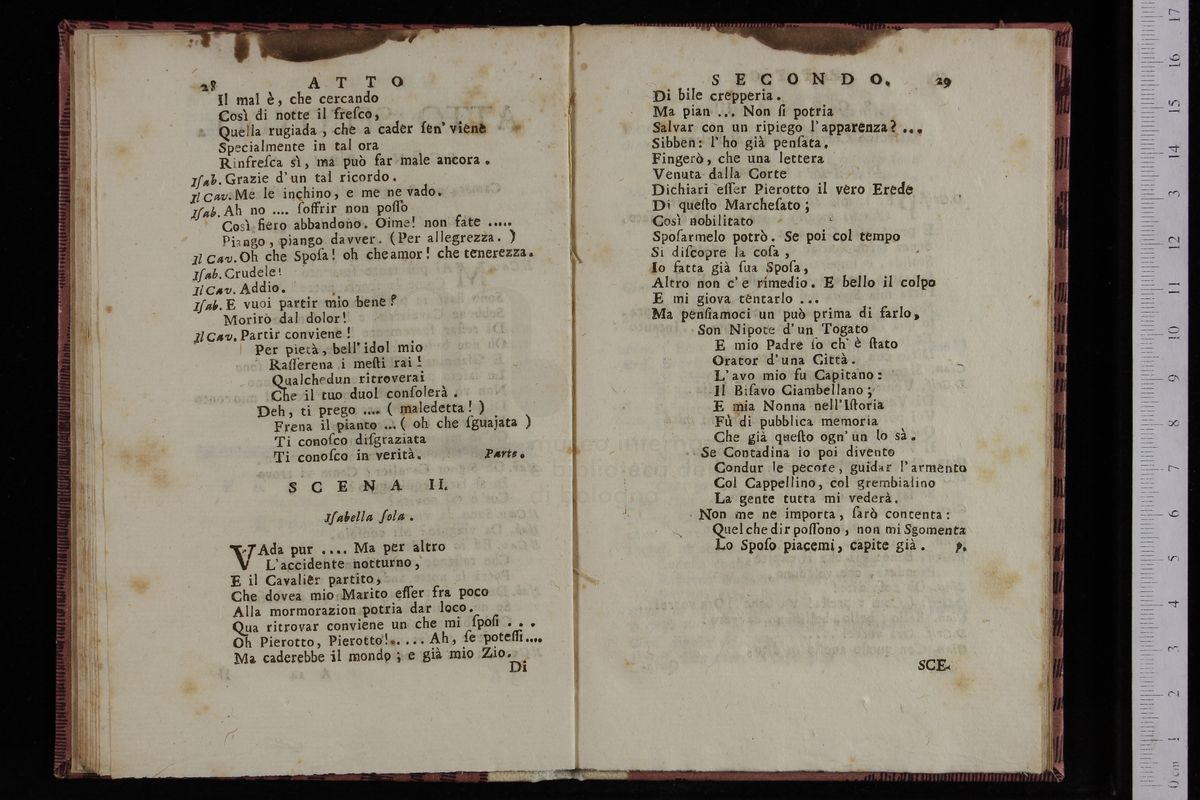 28 ATTO
Il mal è, che cercando
Così di notte il freſco,
Quella rugiada, che a cader ſen' viene
Specialmente in tal ora
Rinfreſca sì, ma può far male ancora.
Iſab. Grazie d'un tal ricordo.
Il Cav. Me le inchino, e me ne vado.
Iſab. Ah no .... ſoffrir non poſſo
Così fiero abbandono. Oime! non fate .....
Piango, piango davver. (Per allegrezza. )
Il Cav. Oh che Spoſa! oh che amor! che tenerezza.
Iſab. Crudele!
Il Cav. Addio.
Iſab. E vuoi partir mio bene?
Morirò dal dolor!
Il Cav. Partir conviene!
Per pietà, bell' idol mio
Raſſerena i meſti rai!
Qualchedun ritroverai
Che il tuo duol conſolerà.
Deh, ti prego .... ( maledetta! )
Frena il pianto ... ( oh che ſguajata )
Ti conoſco diſgraziata
Ti conoſco in verità. Parte.
SCENA II.
Iſabella ſola.
VAda pur .... Ma per altro
L'accidente notturno,
E il Cavalier partito,
Che dovea mio Marito eſſer fra poco
Alla mormorazion potria dar loco.
Qua ritrovar conviene un che mi ſpoſi . . .
Oh Pierotto, Pierotto! ..... Ah, ſe poteſſi....
Ma caderebbe il mondo; e già mio Zio.
Di
SECONDO. 29
Di bile crepperia.
Ma pian ... Non ſi potria
Salvar con un ripiego l'apparenza? ...
Sibben: l'ho già penſata.
Fingerò, che una lettera
Venuta dalla Corte
Dichiari eſſer Pierotto il vero Erede
Di queſto Marcheſato;
Così nobilitato
Spoſarmelo potrò. Se poi col tempo
Si diſcopre la coſa,
Io fatta già ſua Spoſa,
Altro non c'e rimedio. E bello il colpo
E mi giova tentarlo ...
Ma penſiamoci un può prima di farlo,
Son Nipote d'un Togato
E mio Padre ſo ch' è ſtato
Orator d'una Città.
L'avo mio fu Capitano:
Il Biſavo Ciambellano;
E mia Nonna nell'Iſtoria
Fù di pubblica memoria
Che già queſto ogn' un lo sà.
Se Contadina io poi divento
Condur le pecore, guidar l'armento
Col Cappellino, col grembialino
La gente tutta mi vederà.
Non me ne importa, ſarò contenta:
Quel che dir poſſono, non mi Sgomenta
Lo Spoſo piacemi, capite già. p.
SCE-